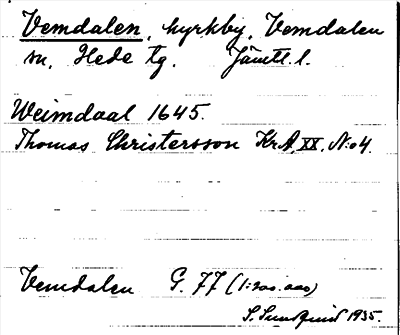 Vemdalen, kyrkby, Vemdalen
sn, Hede tg. Jämtl. l.
Weimdaal 1645.
Thomas Christersson KrA, XX, N:o 4.
Vemdalen G. 77 (1:200.000)
S. Sundquist 1935.